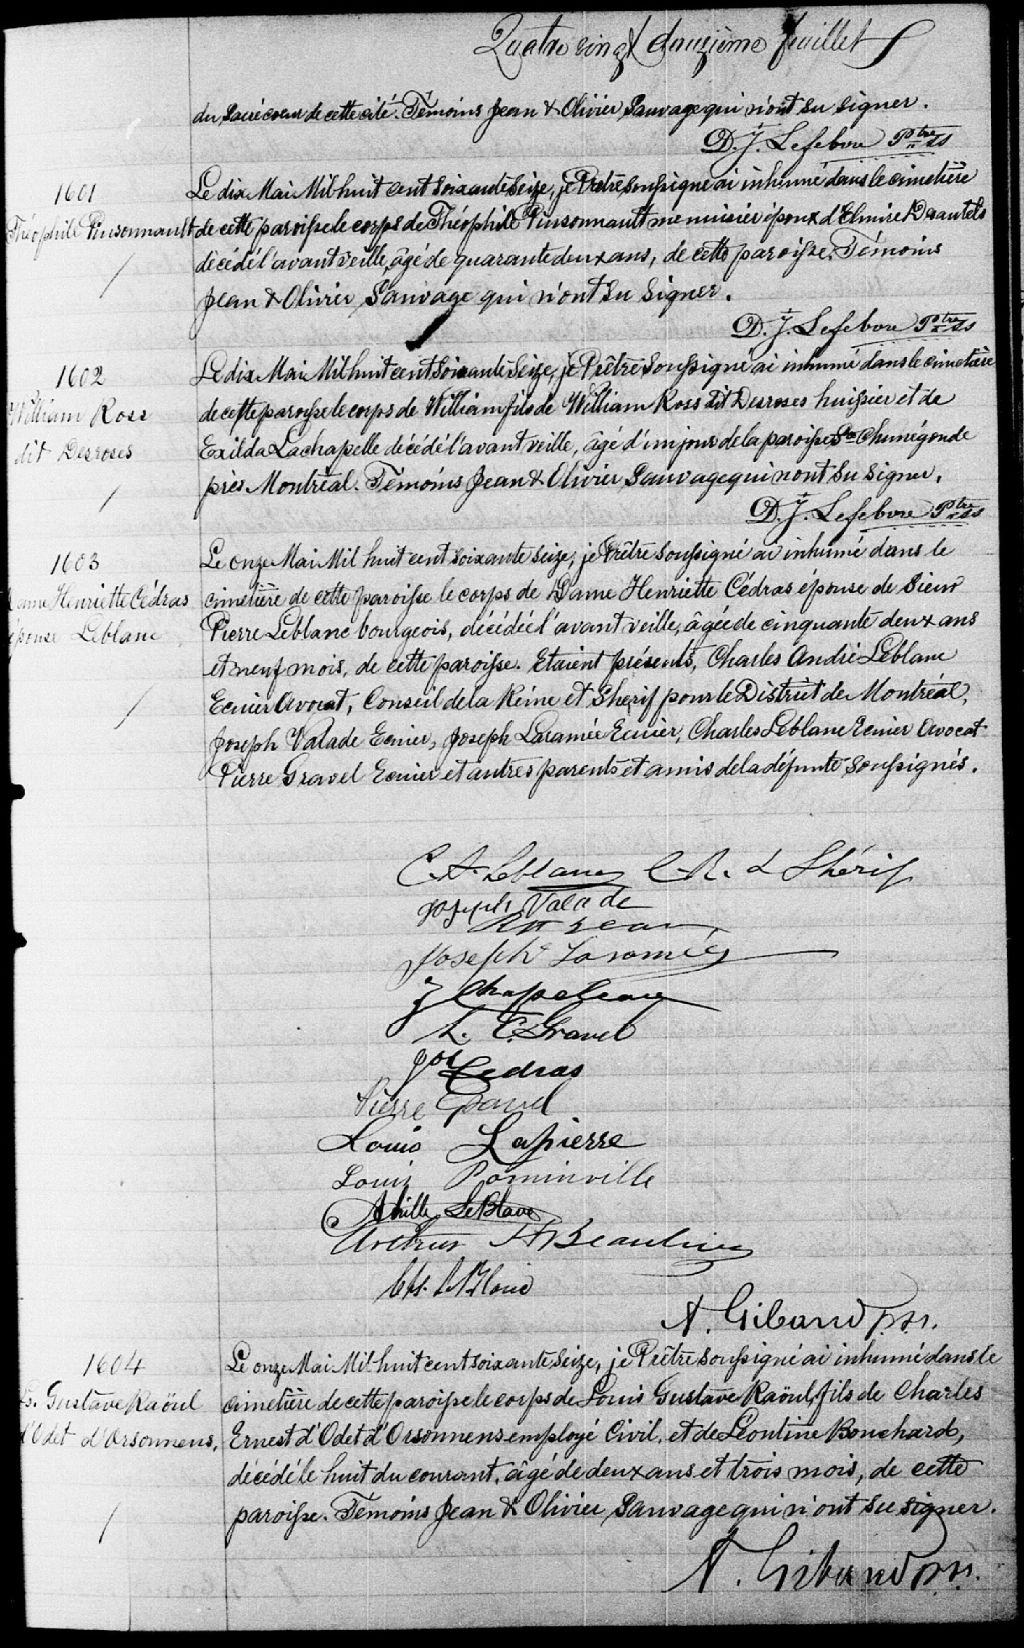 Quatre vingt douzième feuillet
du Sacré coeur de cette cité. Témoins Jean & Olivier Sauvage qui n'ont su signer.
D. J. Lefebvre Ptre SS
1601
Théophile Pinsonnault
Le dix Mai Mil huit cent soixante Seize, je Prêtre soussigné ai inhumé dans le cimetière
de cette paroisse le corps de Théophile Pinsonnault menuisier époux d'Elmire Dsautels
décédé l'avant veille, âgé de quarante deux ans, de cette paroisse. Témoins
Jean & Olivier Sauvage qui n'ont su signer.
D. J. Lefebvre Ptre SS
1602
William Ross
dit Desroses
Le dix Mai Mil huit cent soixante Seize, je Prêtre soussigné ai inhumé dans le cimetière
de cette paroisse le corps de William fils de William Ross dit Desroses huissier et de
Exilda Lachapelle décédé l'avant veille, âgé d'un jour de la paroisse Ste Chunégonde
près Montréal. Témoins Jean & Olivier Sauvage qui n'ont su signer.
D. J. Lefebvre Ptre SS
1603
Dame Henriette Cédras
épouse Leblanc
Le onze Mai Mil huit cent soixante seize, je Prêtre soussigné ai inhumé dans le
cimetière de cette paroisse le corps de Dame Henriette Cédras épouse de Sieur
Pierre Leblanc bourgeois, décédée l'avant veille, âgée de cinquante deux ans
et neuf mois, de cette paroisse. Etaient présents, Charles André Leblanc
Ecuier Avocat, Conseil de la Reine et Shérif pour le District de Montréal,
Joseph Valade Ecuier, Joseph Laramée Ecuier, Charles Leblanc Ecuier Avocat
Pierre Gravel Ecuier et autres parents et amis de la défunte soussignés.
C. A. Leblanc C. R. & Shérif
Joseph Valade
Joseph Laramée
J Chapeleau
L. C. Gravel
Jos Cedras
Pierre Gravel
Louis Lapierre
Louis Pominville
Achille LeBlanc
Arthur H Beaulieu
Chs.
A. Giband p.s.s.
1604
Ls. Gustave Raöul
d'Odet d'Orsonnens,
Le onze Mai Mil huit cent soixante Seize, je Prêtre soussigné ai inhumé dans le
cimetière de cette paroisse le corps de Louis Gustave Raöul, fils de Charles
Ernest d'Odet d'Orsonnens employé Civil, et de Léontine Bouchard,
décédé le huit du courant, âgé de deux ans et trois mois, de cette
paroisse. Témoins Jean & Olivier Sauvage qui n'ont su signer.
A. Giband p.s.s.